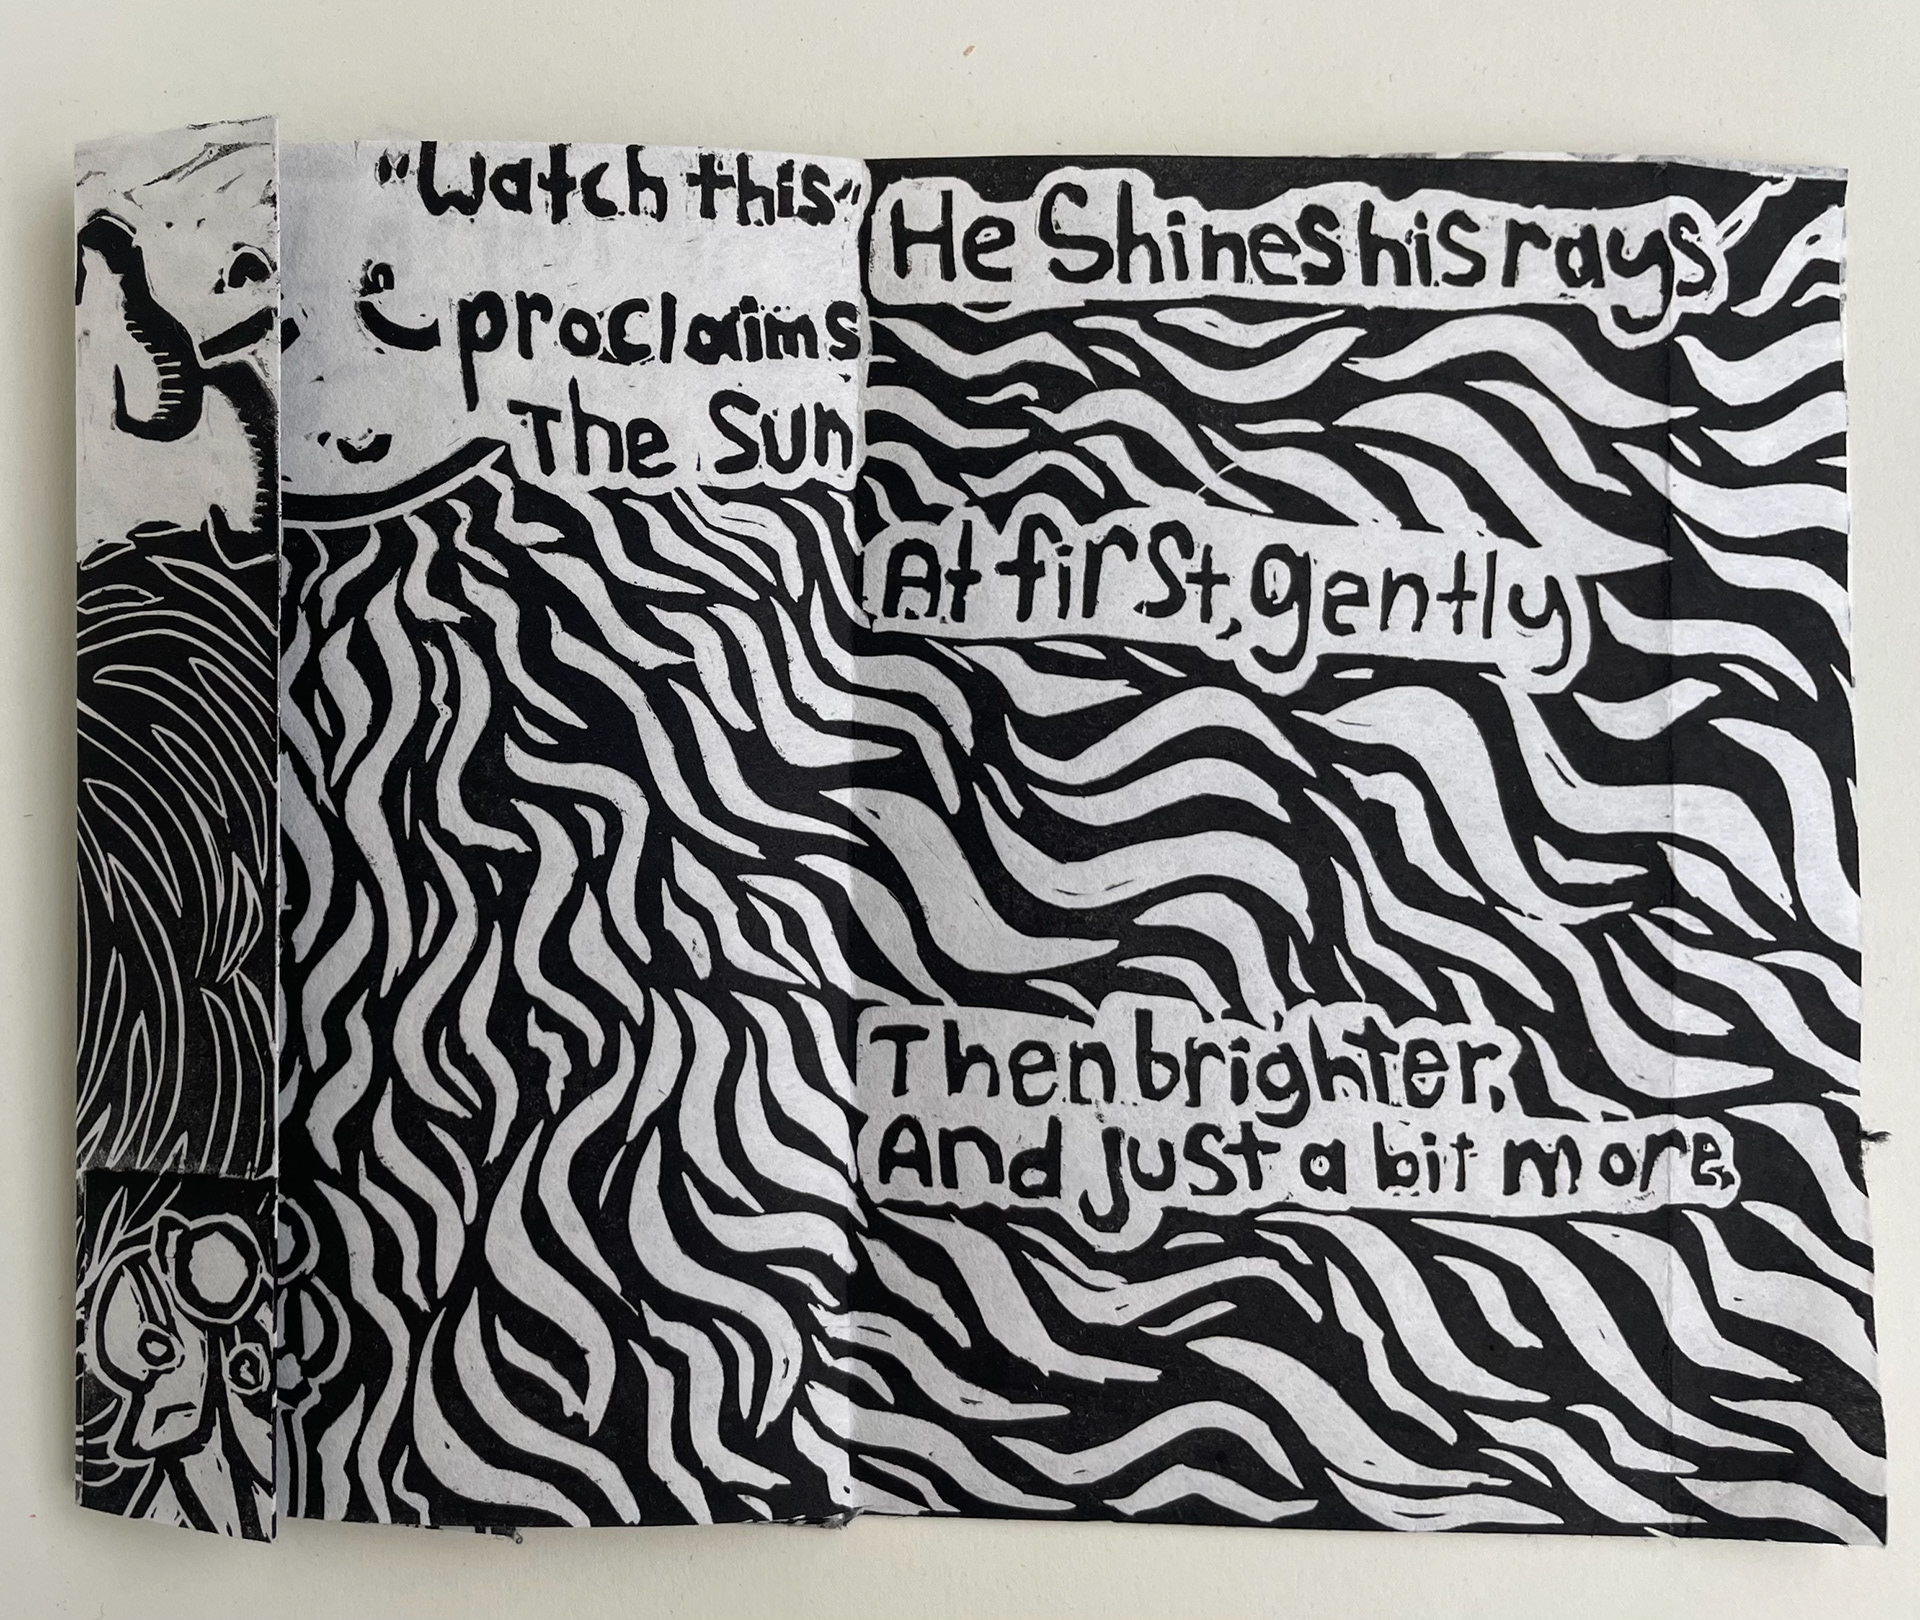 "Watch this"
proclaims
The Sun
He Shines his rays
At first, gently
Then brighter,
And just a bit more,